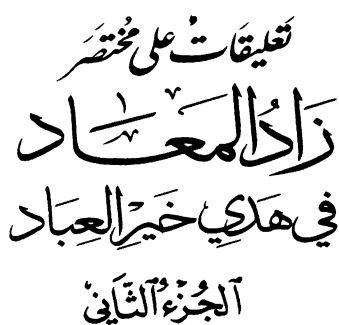 تعليقات على مختصر
زَادُ المعَاد
في هَدي خَيرِ العِباد
الجُزءُ الثَّاني